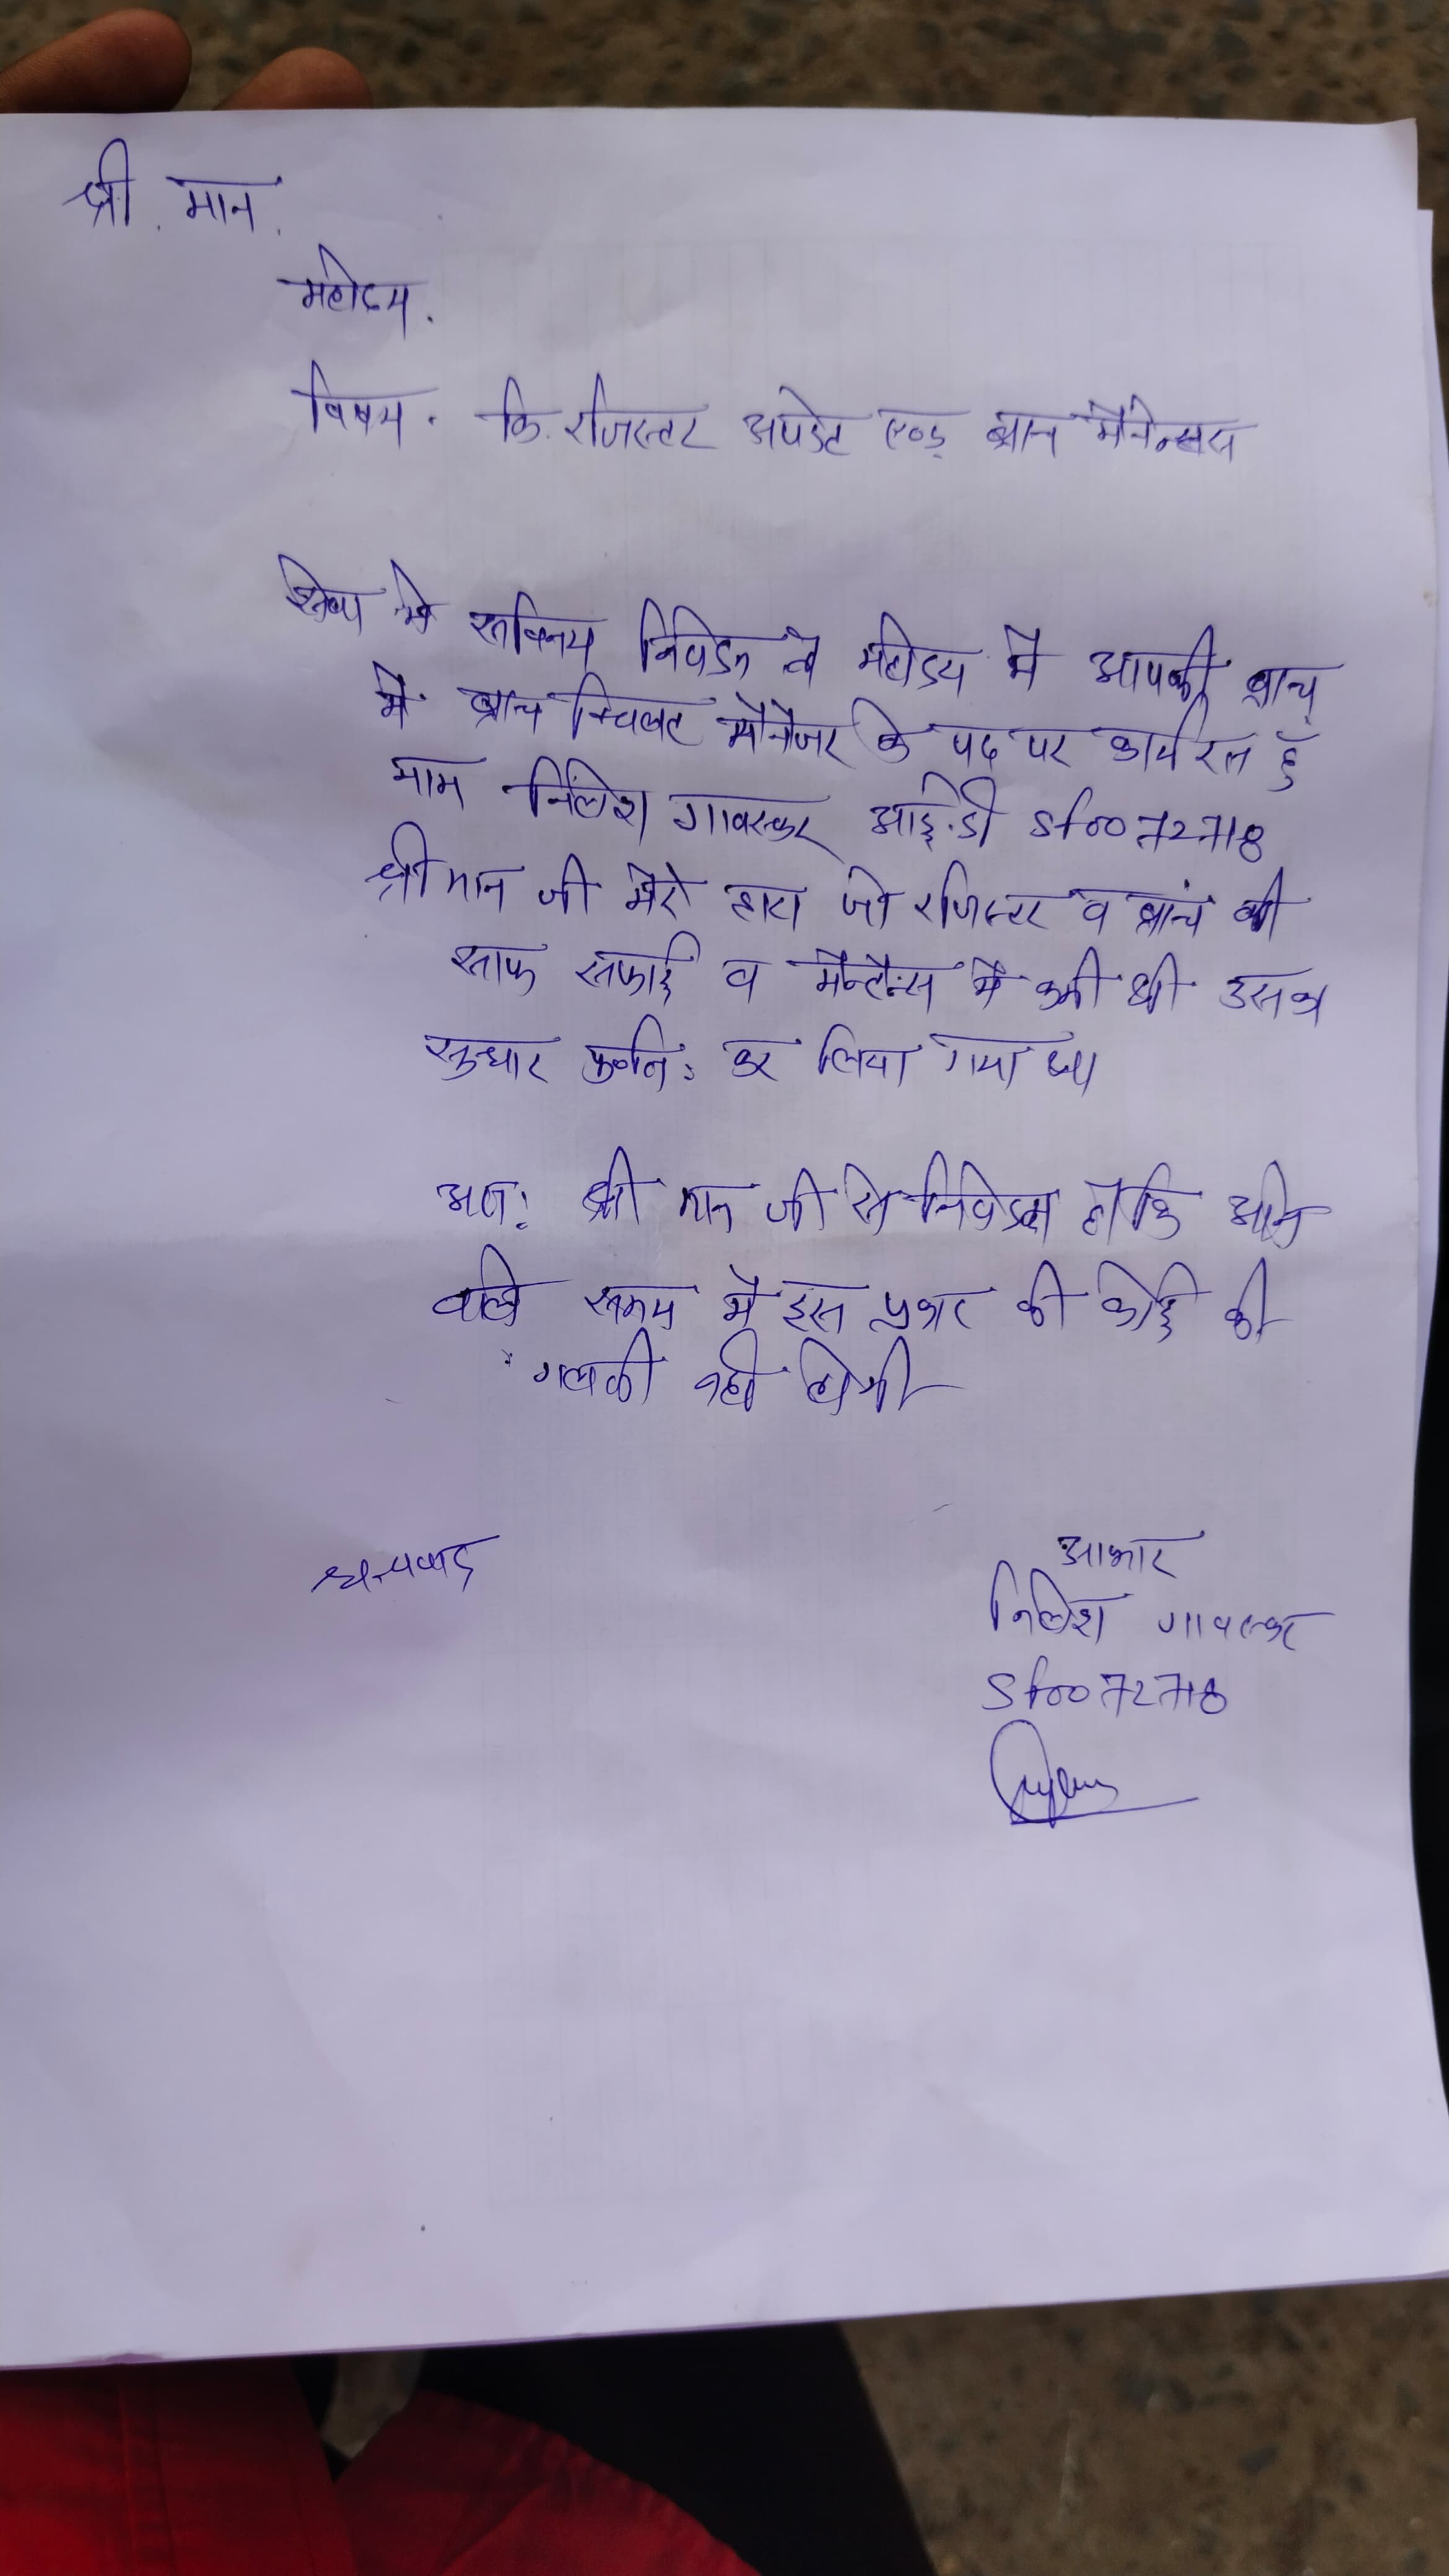 श्री. मान.
महोदय.
विषय. कि. रजिस्टर अपडेट एण्ड ब्रान्च मेंनेन्सस
सेवा में सविनय निवेदन है महोदय में आपकी ब्रान्च
में ब्रान्च मैनेजर के पद पर कार्यरत हुँ
नाम निलेश गावस्कर आई.डी Sf0072718
श्री मान जी मेरे द्वारा जो रजिस्टर व ब्रांच की
साफ सफाई व मेन्टेन्स में कमी थी उसका
सुधार कर लिया गया था
अतः श्री मान जी से निवेदन है कि आने
वाले समय में इस प्रकार की कोई की
गलती नही होगी
धन्यवाद
आभार
निलेश गावस्कर
Sf0072718